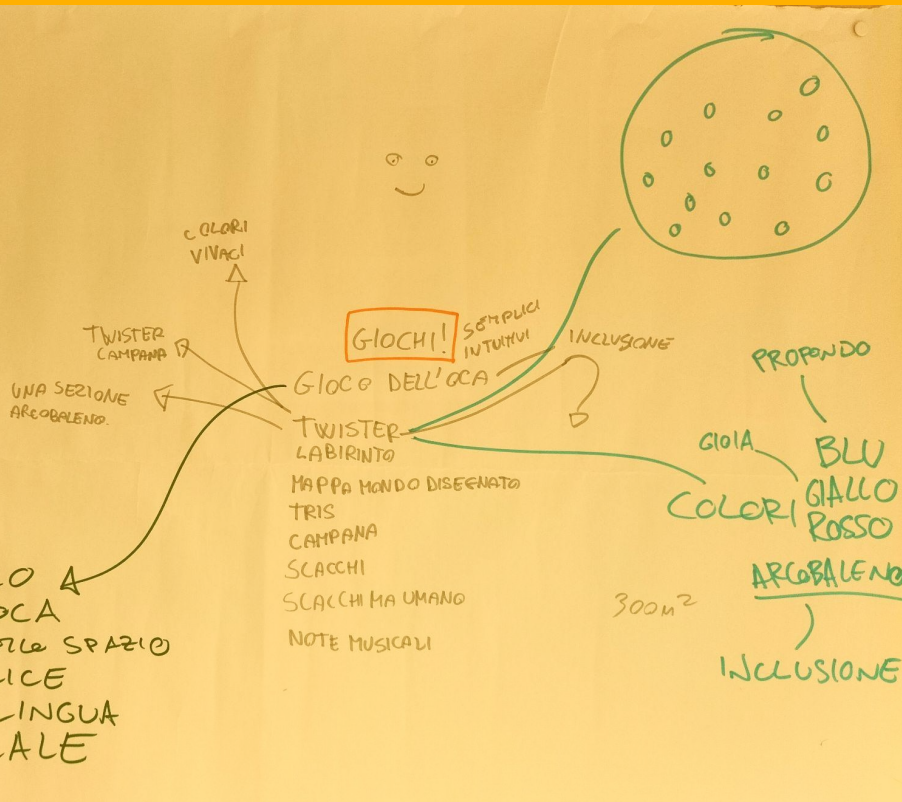 COLORI
VIVACI
TWISTER
CAMPANA
UNA SEZIONE
ARCOBALENO.
GIOCHI!
SEMPLICI
INTUITIVI
INCLUSIONE
GIOCO DELL'OCA
TWISTER
LABIRINTO
MAPPA MONDO DISEGNATO
TRIS
CAMPANA
SCACCHI
SCACCHI MA UMANO
NOTE MUSICALI
300M²
PROFONDO
GIOIA
COLORI
BLU
GIALLO
ROSSO
ARCOBALENO
INCLUSIONE
LO
OCA
SPAZIO
LICE
LINGUA
ALE